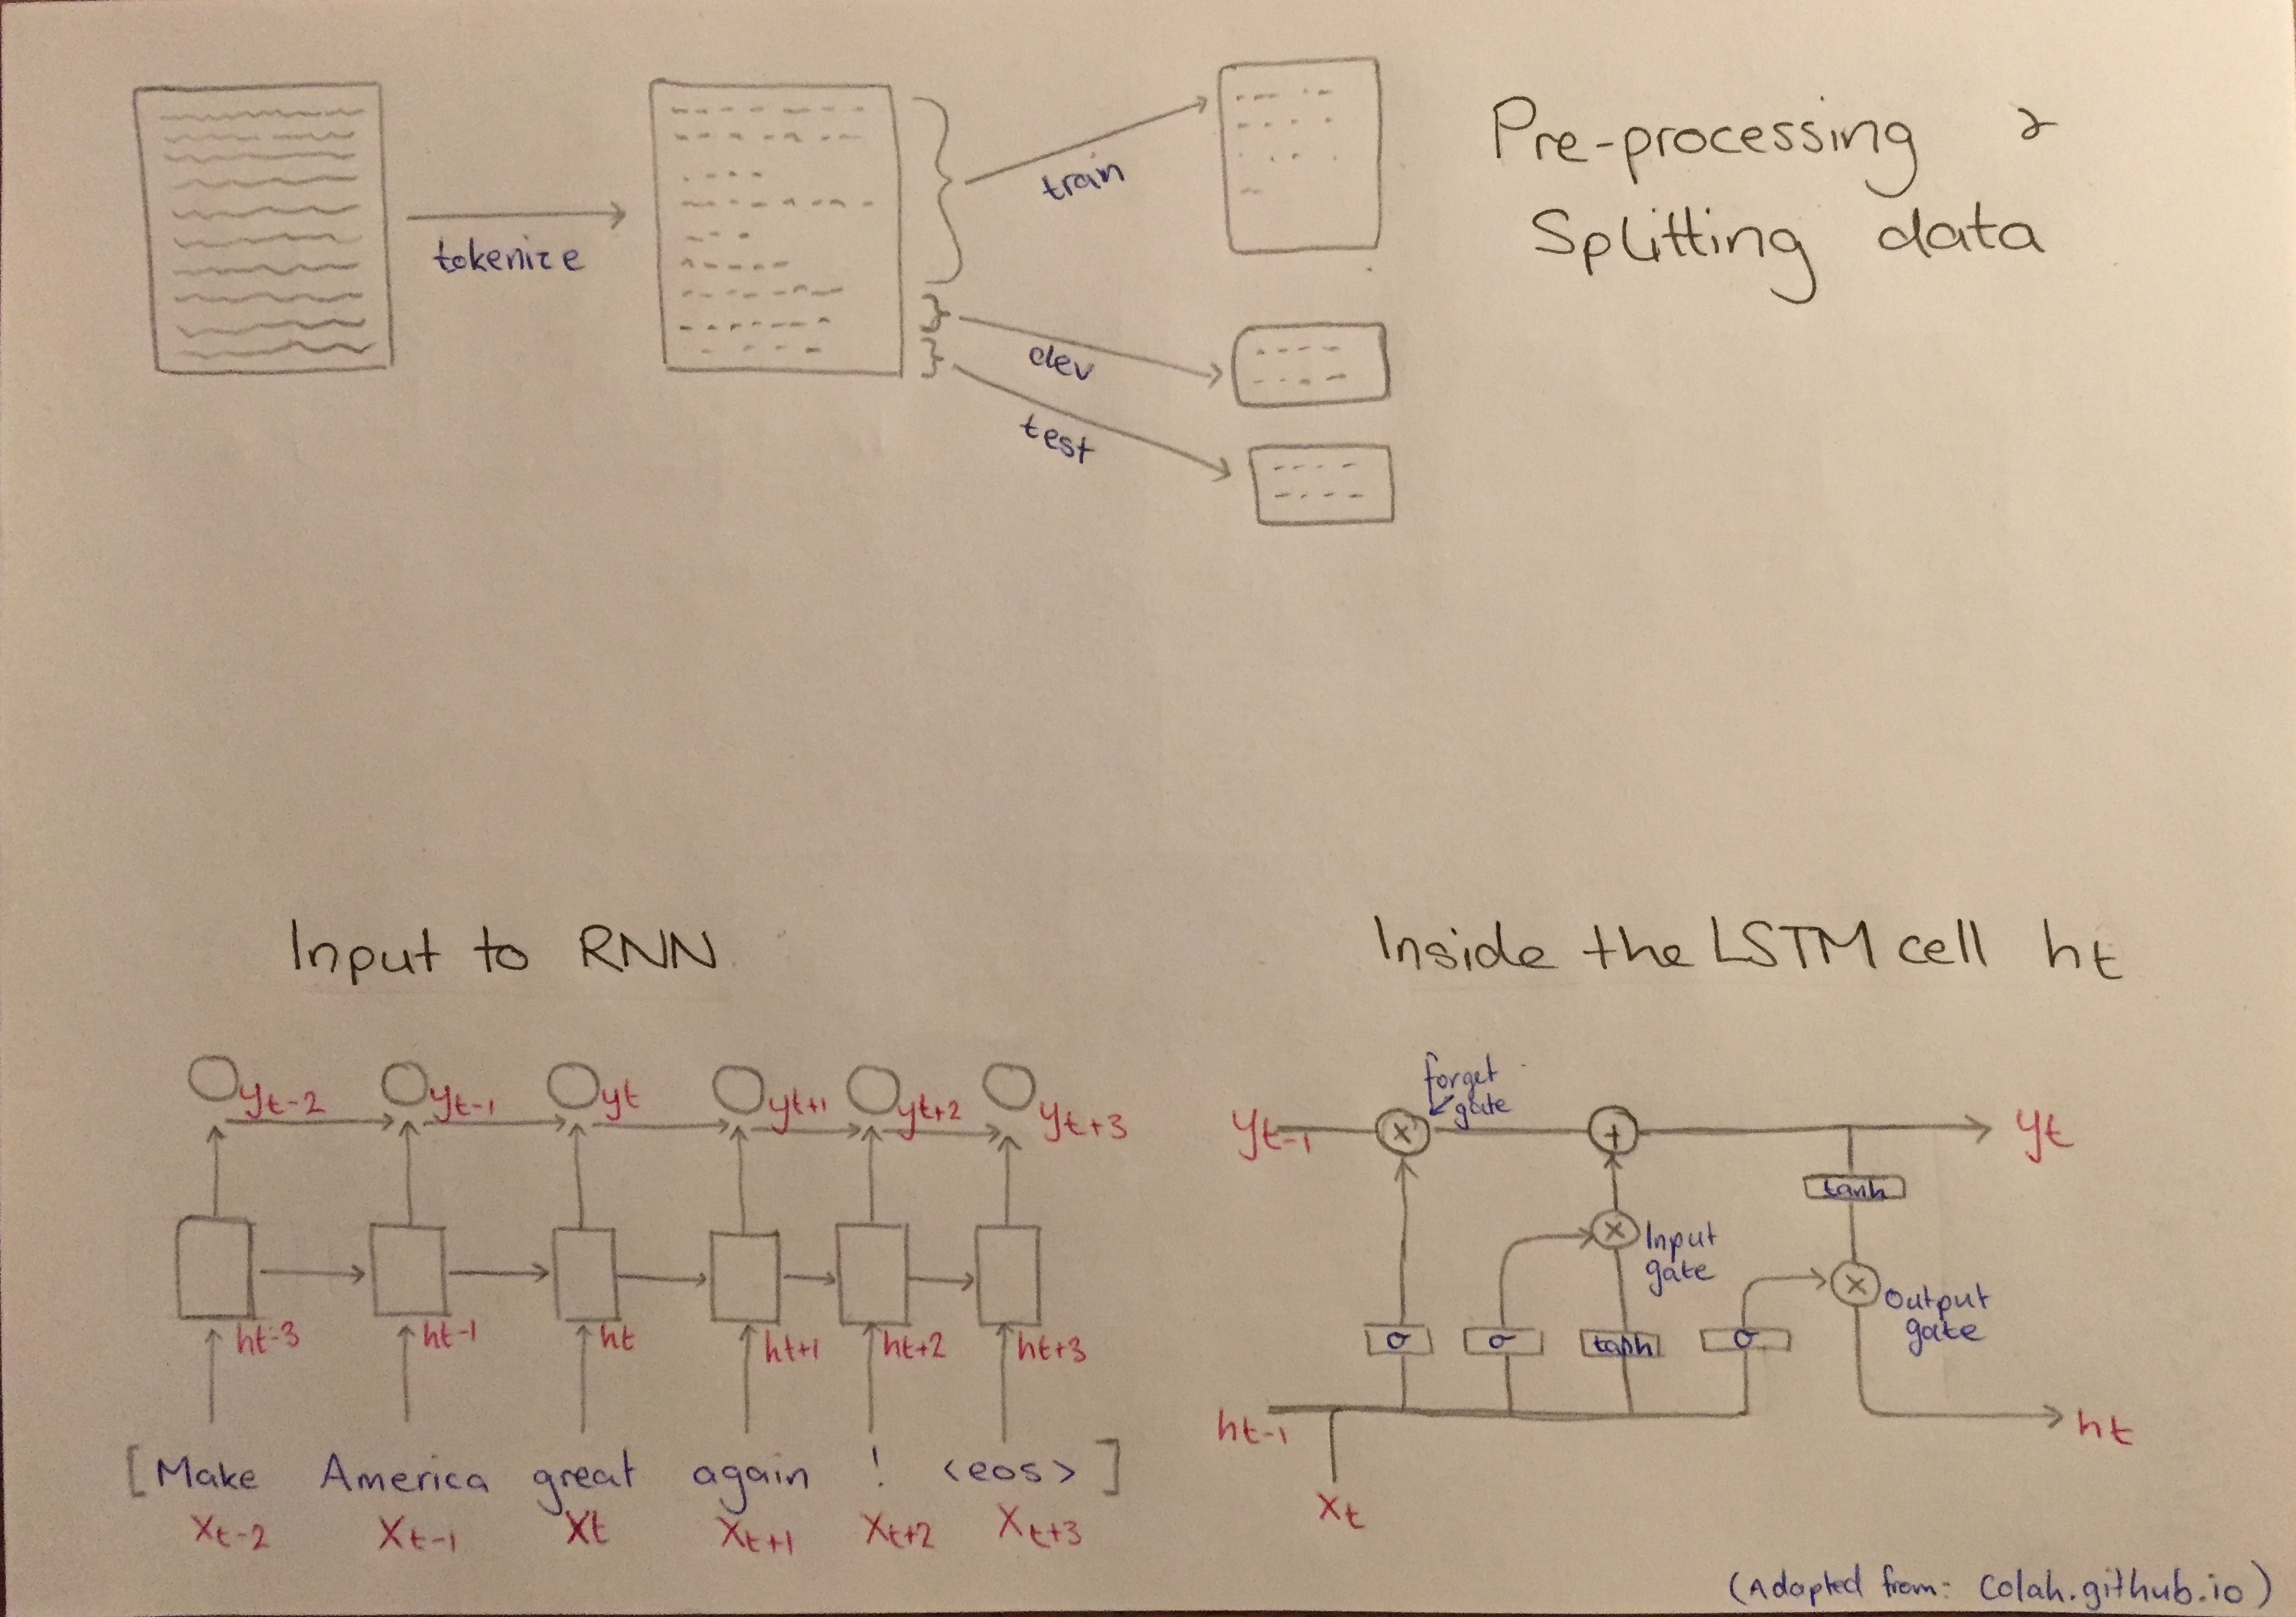 Pre-processing &
Splitting data
tokenize
train
dev
test
Input to RNN
yt-2 yt-1 yt yt+1 yt+2 yt+3
ht-3 ht-1 ht ht+1 ht+2 ht+3
[Make America great again ! <eos>]
xt-2 xt-1 xt xt+1 xt+2 xt+3
Inside the LSTM cell ht
forget
gate
yt-1 x + yt
tanh
x Input
gate
x Output
gate
σ σ tanh σ
ht-1 ht
xt
(Adapted from: colah.github.io)